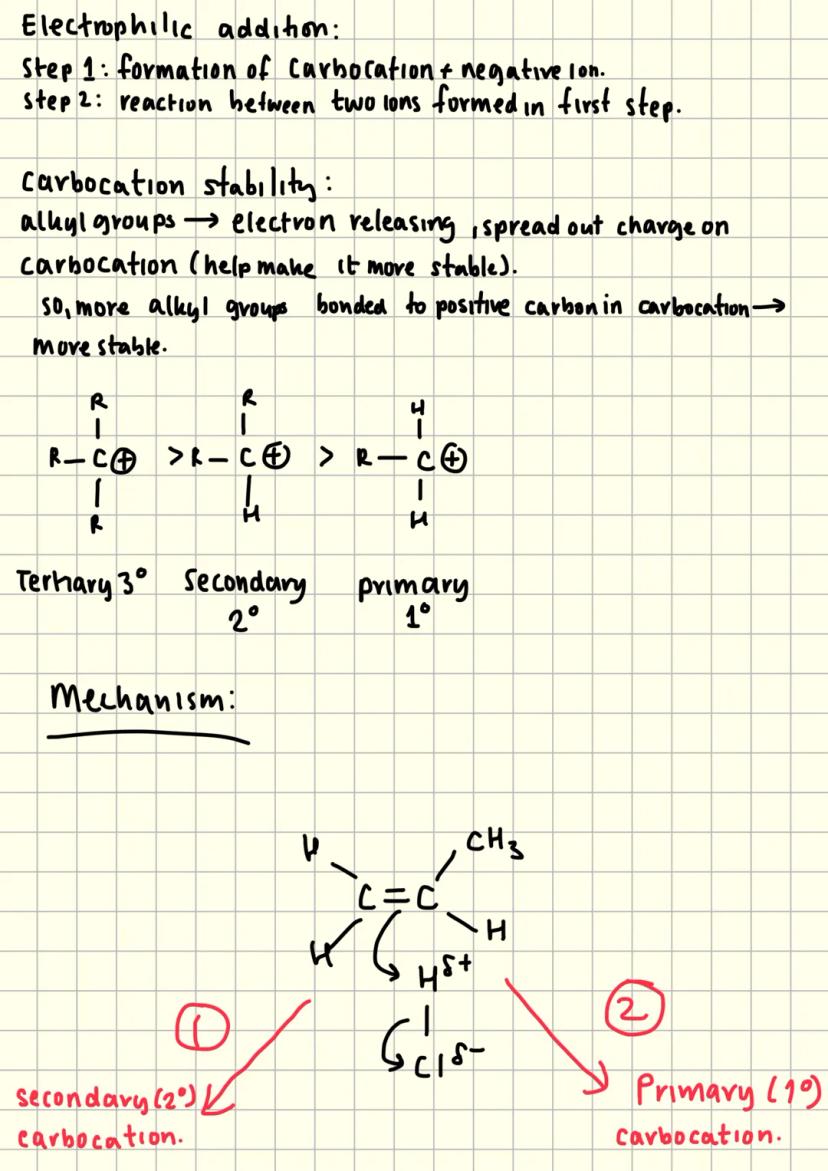 Electrophilic addition:
Step 1: formation of carbocation + negative ion.
Step 2: reaction between two ions formed in first step.
carbocation stability:
alkyl groups → electron releasing, spread out charge on
carbocation (help make it more stable).
so, more alkyl groups bonded to positive carbon in carbocation →
more stable.
R R H
R–C⊕ > R–C⊕ > R–C⊕
R H H
Tertiary 3° Secondary primary
2° 1°
Mechanism:
H CH₃
C=C
H H
H δ+
① ②
Cl δ−
secondary (2°) Primary (1°)
carbocation. carbocation.